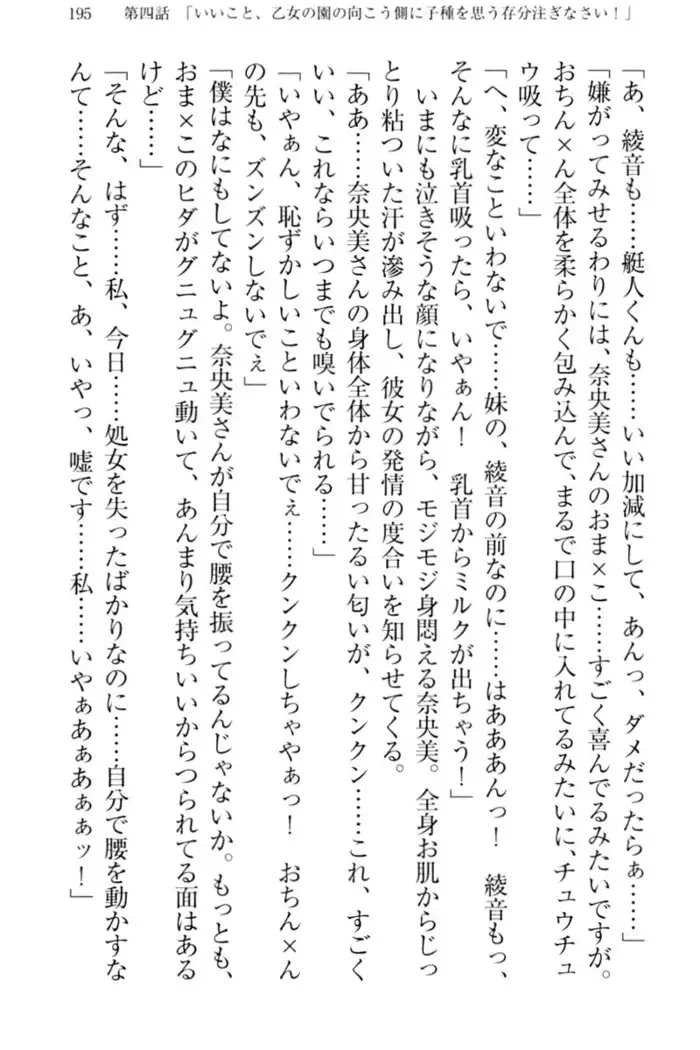 195　第四話　「いいこと、乙女の園の向こう側に子種を思う存分注ぎなさい！」
「あ、綾音も……艇人くんも……いい加減にして、あんっ、ダメだったらぁ……」
「嫌がってみせるわりには、奈央美さんのおま×こ……すごく喜んでるみたいですが。
おちん×ん全体を柔らかく包み込んで、まるで口の中に入れてるみたいに、チュウチュ
ウ吸って……」
「へ、変なこといわないで……妹の、綾音の前なのに……はあああんっ！　綾音もっ、
そんなに乳首吸ったら、いやぁん！　乳首からミルクが出ちゃう！」
　いまにも泣きそうな顔になりながら、モジモジ身悶える奈央美。全身お肌からじっ
とり粘ついた汗が滲み出し、彼女の発情の度合いを知らせてくる。
「ああ……奈央美さんの身体全体から甘ったるい匂いが、クンクン……これ、すごく
いい、これならいつまでも嗅いでられる……」
「いやぁん、恥ずかしいこといわないでぇ……クンクンしちゃやぁっ！　おちん×ん
の先も、ズンズンしないでぇ」
「僕はなにもしてないよ。奈央美さんが自分で腰を振ってるんじゃないか。もっとも、
おま×このヒダがグニュグニュ動いて、あんまり気持ちいいからつられてる面はある
けど……」
「そんな、はず……私、今日……処女を失ったばかりなのに……自分で腰を動かすな
んて……そんなこと、あ、いやっ、嘘です……私……いやぁあぁあぁぁッ！」